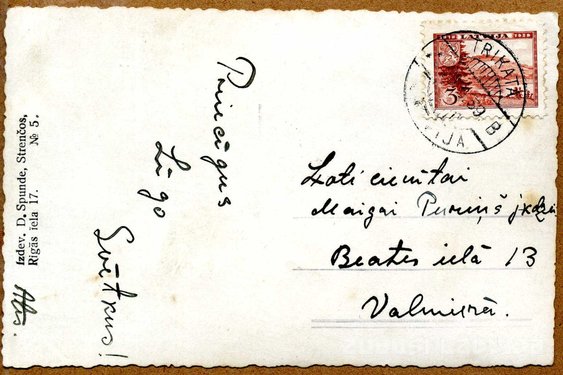 Izdev. D. Spunde, Strenčos,
Rīgās ielā 17. № 5.
Priecīgus
Līgo
Svētkus!
LATVIJA
3
TRIKATA
B
Ļoti cienītai
Maigai Puriņš jkdzei
Beates ielā 13
Valmierā.